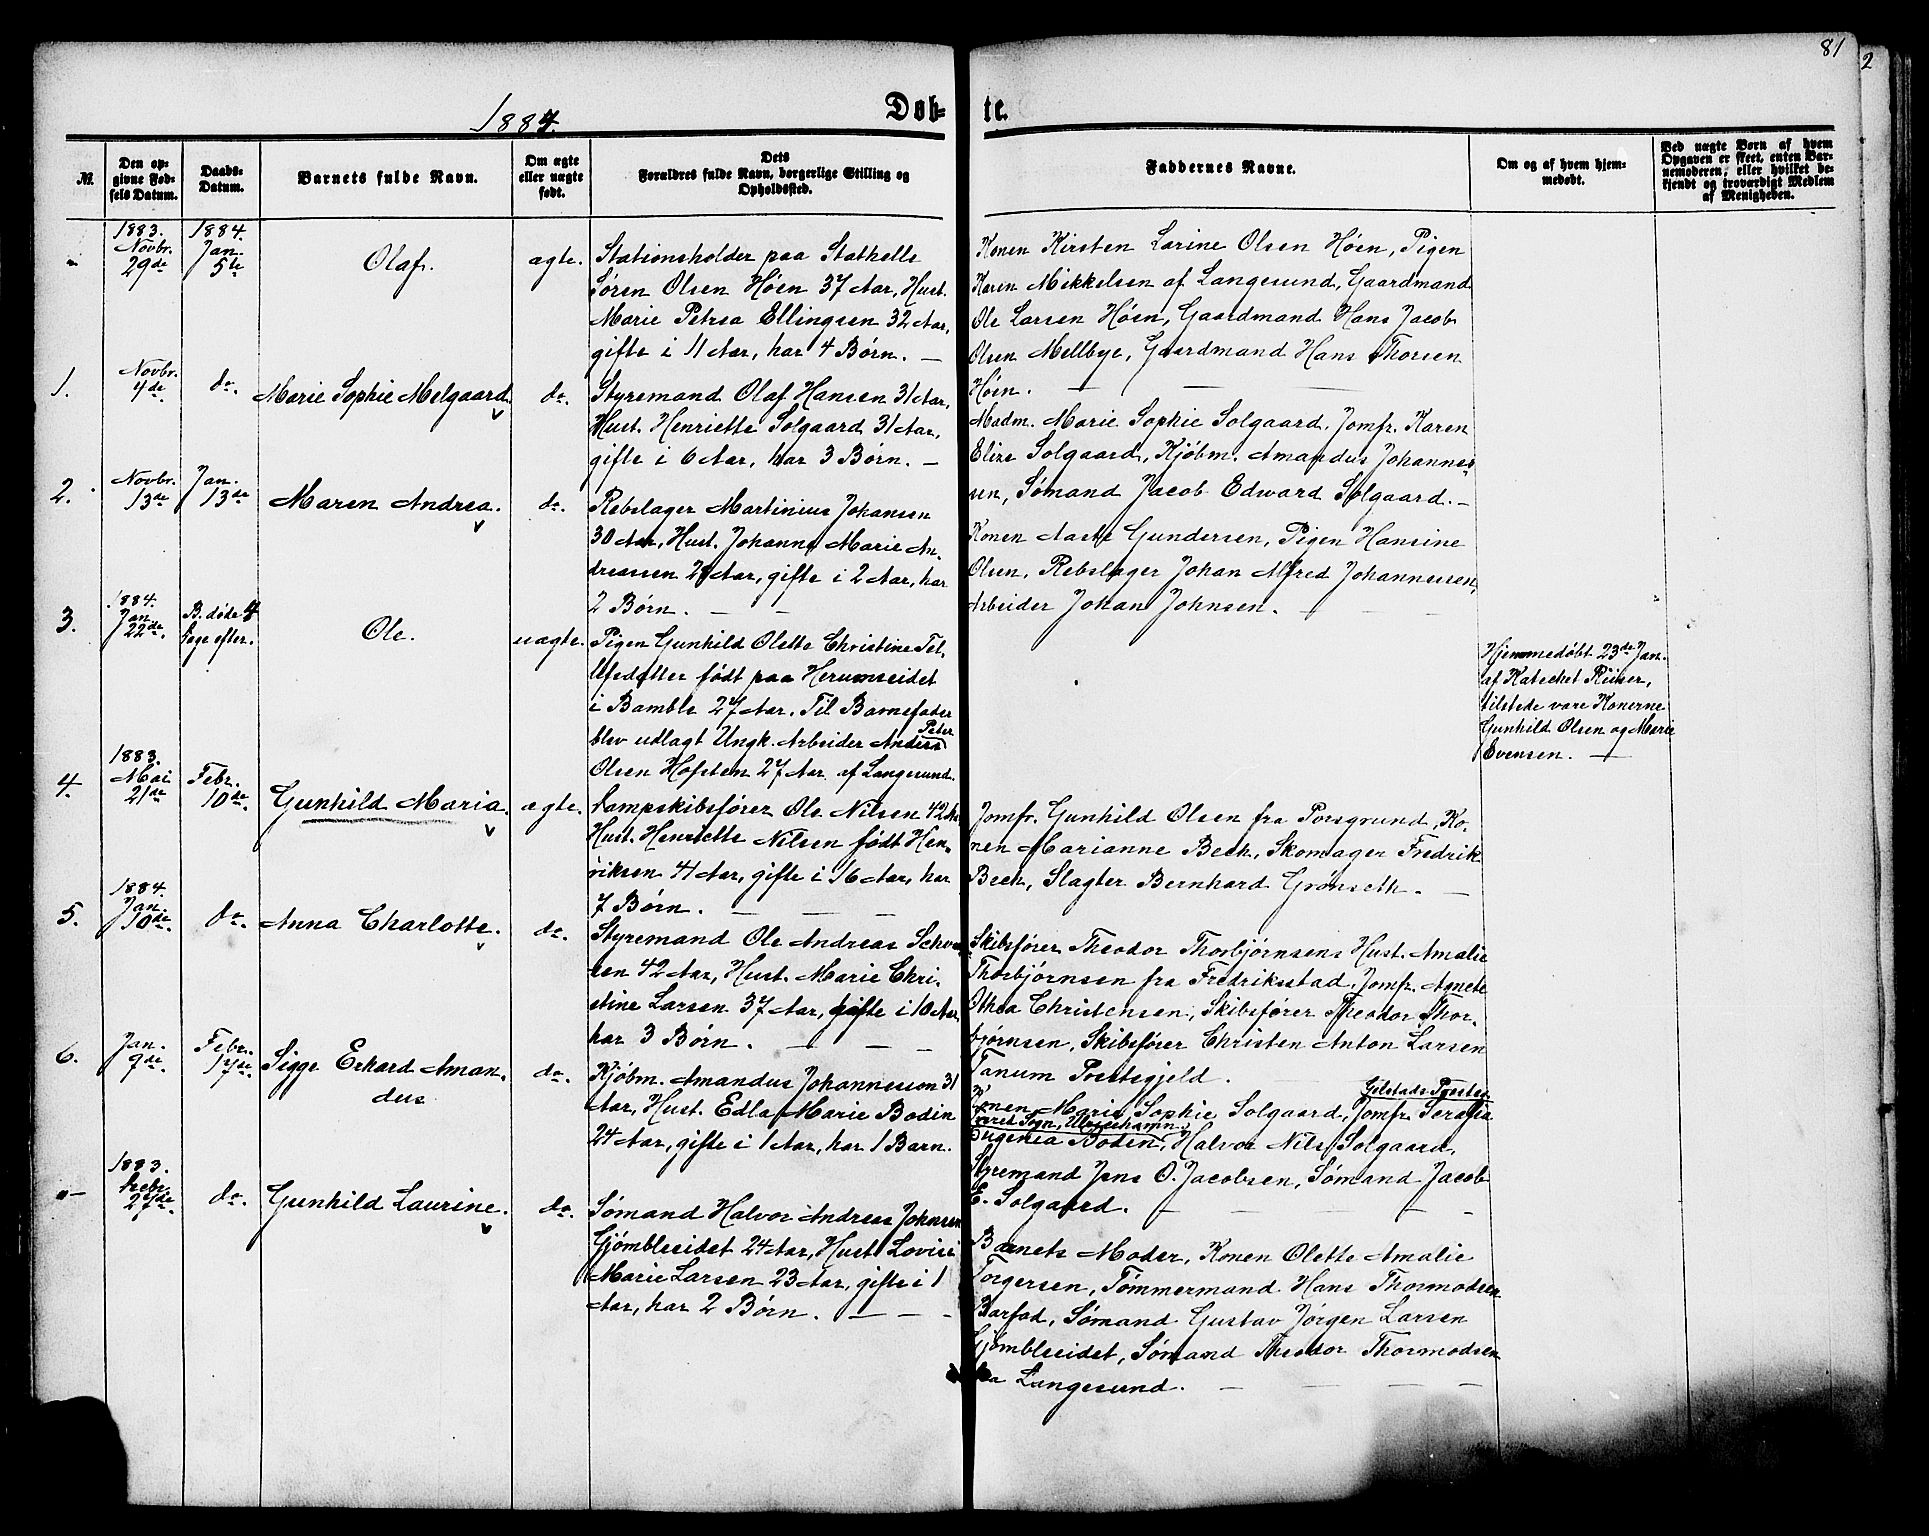 81
2
1884.
Døb-
te.
№.
Den op-
givne Fød-
sels Datum.
Daabs-
Datum.
Barnets fulde Navn.
Om ægte
eller uægte
født.
Dets
Forældres fulde Navn, borgerlige Stilling og
Opholdssted.
Faddernes Navne.
Om og af hvem hjem-
medøbt.
Ved uægte Børn af hvem
Opgaven er skeet, enten Bar-
nemoderen, eller hvilket be-
kjendt og troværdigt Medlem
af Menigheden.
1883.
Novbr.
29de
1884.
Jan.
5te
Olaf.
ægte.
Stationsholder paa Stathelle
Søren Olsen Høen 37 Aar, Hust.
Marie Petrea Ellingsen 32 Aar,
gifte i 11 Aar, har 4 Børn. —
Konen Kirsten Larine Olsen Høen, Pigen
Karen Mikkelsen af Langesund, Gaardmand
Ole Larsen Høen, Gaardmand Hans Jacob
Olsen Mellbye, Gaardmand Hans Thorsen
Høen. — —
1.
Novbr.
4de.
do.
Marie Sophie Melgaard.
do.
Styremand Olaf Hansen 31 Aar,
Hust. Henriette Solgaard 31 Aar,
gifte i 6 Aar, har 3 Børn. —
Madm. Marie Sophie Solgaard, Jomfr. Karen
Elise Solgaard, Kjøbm. Amandus Johannes-
sen, Sømand Jacob Edward Solgaard. —
2.
Novbr.
13de
Jan.
13de
Maren Andrea.
do.
Rebslager Martinius Johansen
30 Aar, Hust. Johanne Marie An-
dreassen 28 Aar, gifte i 2 Aar, har
2 Børn. — —
Konen Aaste Gundersen, Pigen Hansine
Olsen, Rebslager Johan Alfred Johannessen,
Arbeider Johan Johnsen. — —
3.
1884.
Jan.
22de.
B. døde 4
Dage efter.
Ole.
uægte.
Pigen Gunhild Olette Christine Tel-
lefsdatter født paa Herumseidet
i Bamble 27 Aar. Til Barnefader
blev udlagt Ungk. Arbeider Anders Peter
Olsen Hofsten 27 Aar af Langesund.
Hjemmedøbt 23de Jan.
af Katechet Riiser,
tilstede vare Konerne
Gunhild Olsen og Marie
Evensen. —
4.
1883.
Mai
21de
Febr.
10de.
Gunhild Maria.
ægte.
Dampskibsfører Ole Nilsen 42 Aar
Hust. Henriette Nilsen født Hen-
riksen 41 Aar, gifte i 16 Aar, har
7 Børn. — — —
Jomfr. Gunhild Olsen fra Porsgrund, Ko-
nen Marianne Bech, Skomager Fredrik
Bech, Slagter Bernhard Grønseth. —
5.
1884.
Jan.
10de.
do.
Anna Charlotte.
do.
Styremand Ole Andreas
42 Aar, Hust. Marie Chri-
stine Larsen 37 Aar, gifte i 10 Aar
har 3 Børn. — — —
Skibsfører Theodor Thorbjørnsens Hust. Amalie
Thorbjørnsen fra Fredriksstad, Jomfr. Agnete
Othea Christensen, Skibsfører Theodor Thor-
bjørnsen, Skibsfører Christen Anton Larsen
Tanum Postsgjeld.
6.
Jan.
9de.
Febr.
17de.
Sigge Erhard Aman-
dus
do.
Kjøbm. Amandus Johannessen 31
Aar, Hust. Edla Marie Bodin
24 Aar, gifte i 1 Aar, har 1 Barn.
Konen Marie Sophie Solgaard, Jomfr. Serafia
Eugenia Boden, Halvor Nils Solgaard,
Styremand Jens O. Jacobsen, Sømand Jacob
E. Solgaard. — — — —
" —
1883.
Febr.
27de.
do.
Gunhild Laurine.
do.
Sømand Halvor Andreas Johnsen
Gjømbleeidet 24 Aar, Hust. Lovise
Marie Larsen 23 Aar, gifte i 1
Aar, har 2 Børn. — — —
Barnets Moder, Konen Olette Amalie
Torgersen, Tømmermand Hans Thormodsen
Barfod, Sømand Gustav Jørgen Larsen
Gjømbleeidet, Sømand Theodor Thormodsen
fra Langesund. — — — —